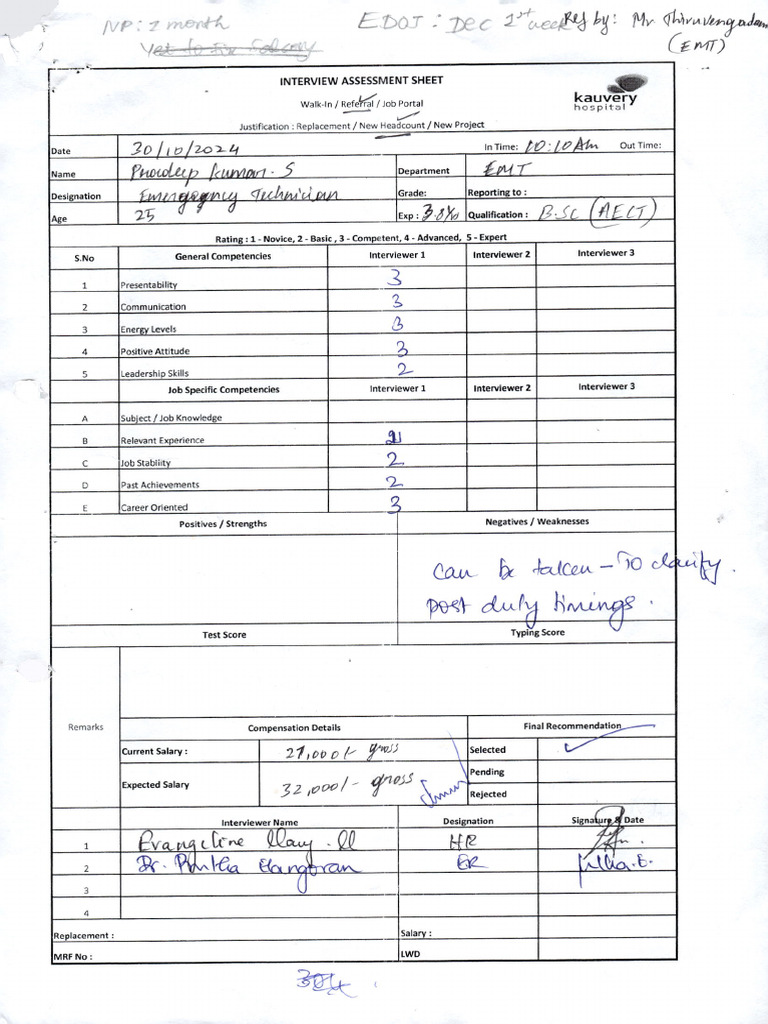 NP: 2 month
EDOJ: Dec 1st week
Ref by: Mr. Thiruvengadam
(EMT)
Yet to fix Salary
INTERVIEW ASSESSMENT SHEET
kauvery
hospital
Walk-In / Referral / Job Portal
Justification : Replacement / New Headcount / New Project
Date 30/10/2024 In Time: 10:10Am Out Time:
Name Pradeep Kumar. S Department EMT
Designation Emergency Technician Grade: Reporting to :
Age 25 Exp : Qualification : B.Sc (AECT)
Rating : 1 - Novice, 2 - Basic , 3 - Competent, 4 - Advanced, 5 - Expert
S.No General Competencies Interviewer 1 Interviewer 2 Interviewer 3
1 Presentability 3
2 Communication 3
3 Energy Levels 3
4 Positive Attitude 3
5 Leadership Skills 2
Job Specific Competencies Interviewer 1 Interviewer 2 Interviewer 3
A Subject / Job Knowledge
B Relevant Experience
C Job Stability 2
D Past Achievements 2
E Career Oriented 3
Positives / Strengths Negatives / Weaknesses
Can be taken – To clarify
post duty timings.
Test Score Typing Score
Remarks
Compensation Details Final Recommendation
Current Salary : 27,000/- gross Selected ✓
Pending
Expected Salary 32,000/- gross
Rejected
Interviewer Name Designation Signature & Date
1 Evangeline Mary. HR
2 Dr. ER
3
4
Replacement : Salary :
MRF No : LWD